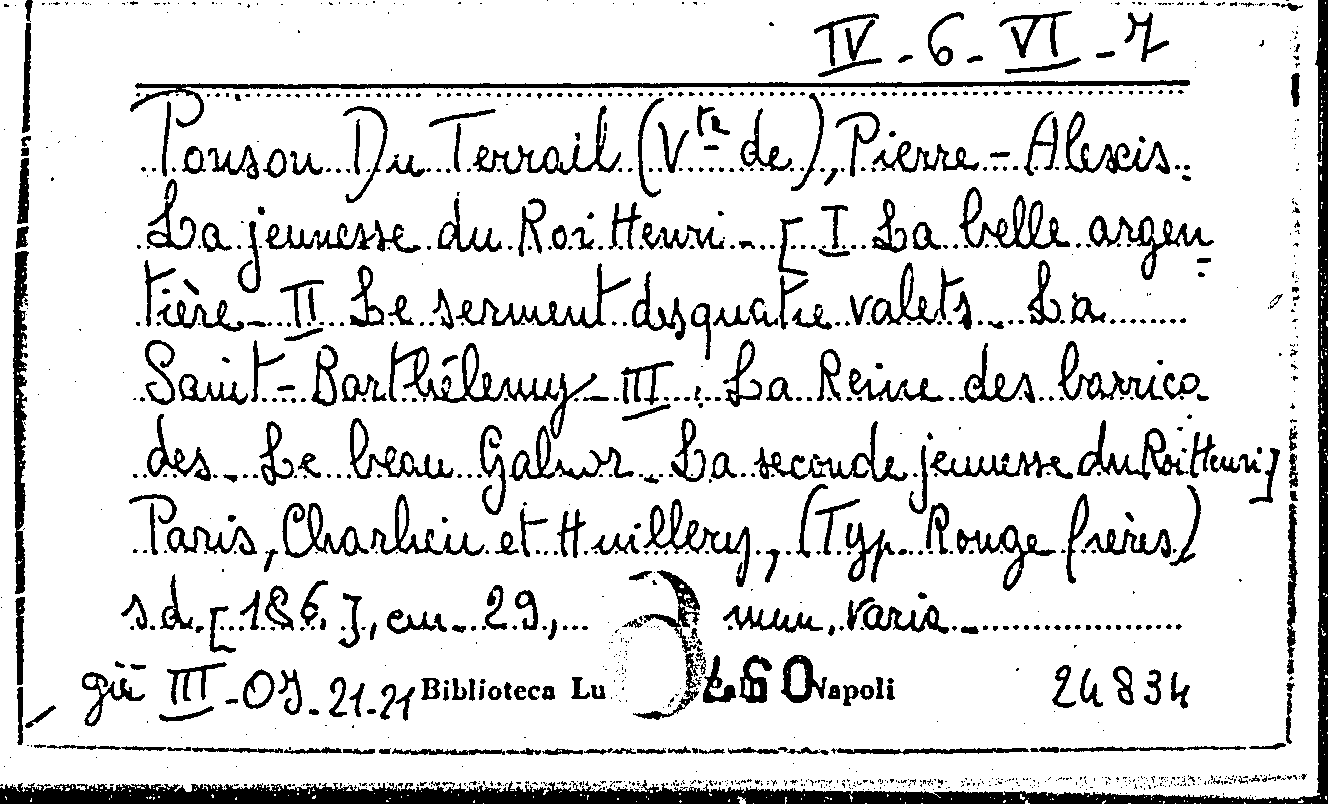 IV - 6 - VI - 7
Ponson Du Terrail (Vte de), Pierre - Alexis.
La jeunesse du Roi Henri - [I La belle argen
tière - II Le serment des quatre valets - La
Saint-Barthélemy - III : La Reine des barrica
des - Le beau Galaor - La seconde jeunesse du Roi Henri]
Paris, Charlieu et Huillery, (Typ. Rouge frères)
s.d. [186.], cm - 29, num. varia -
già III - 21 - 21 Biblioteca Lu 60 Napoli 24834